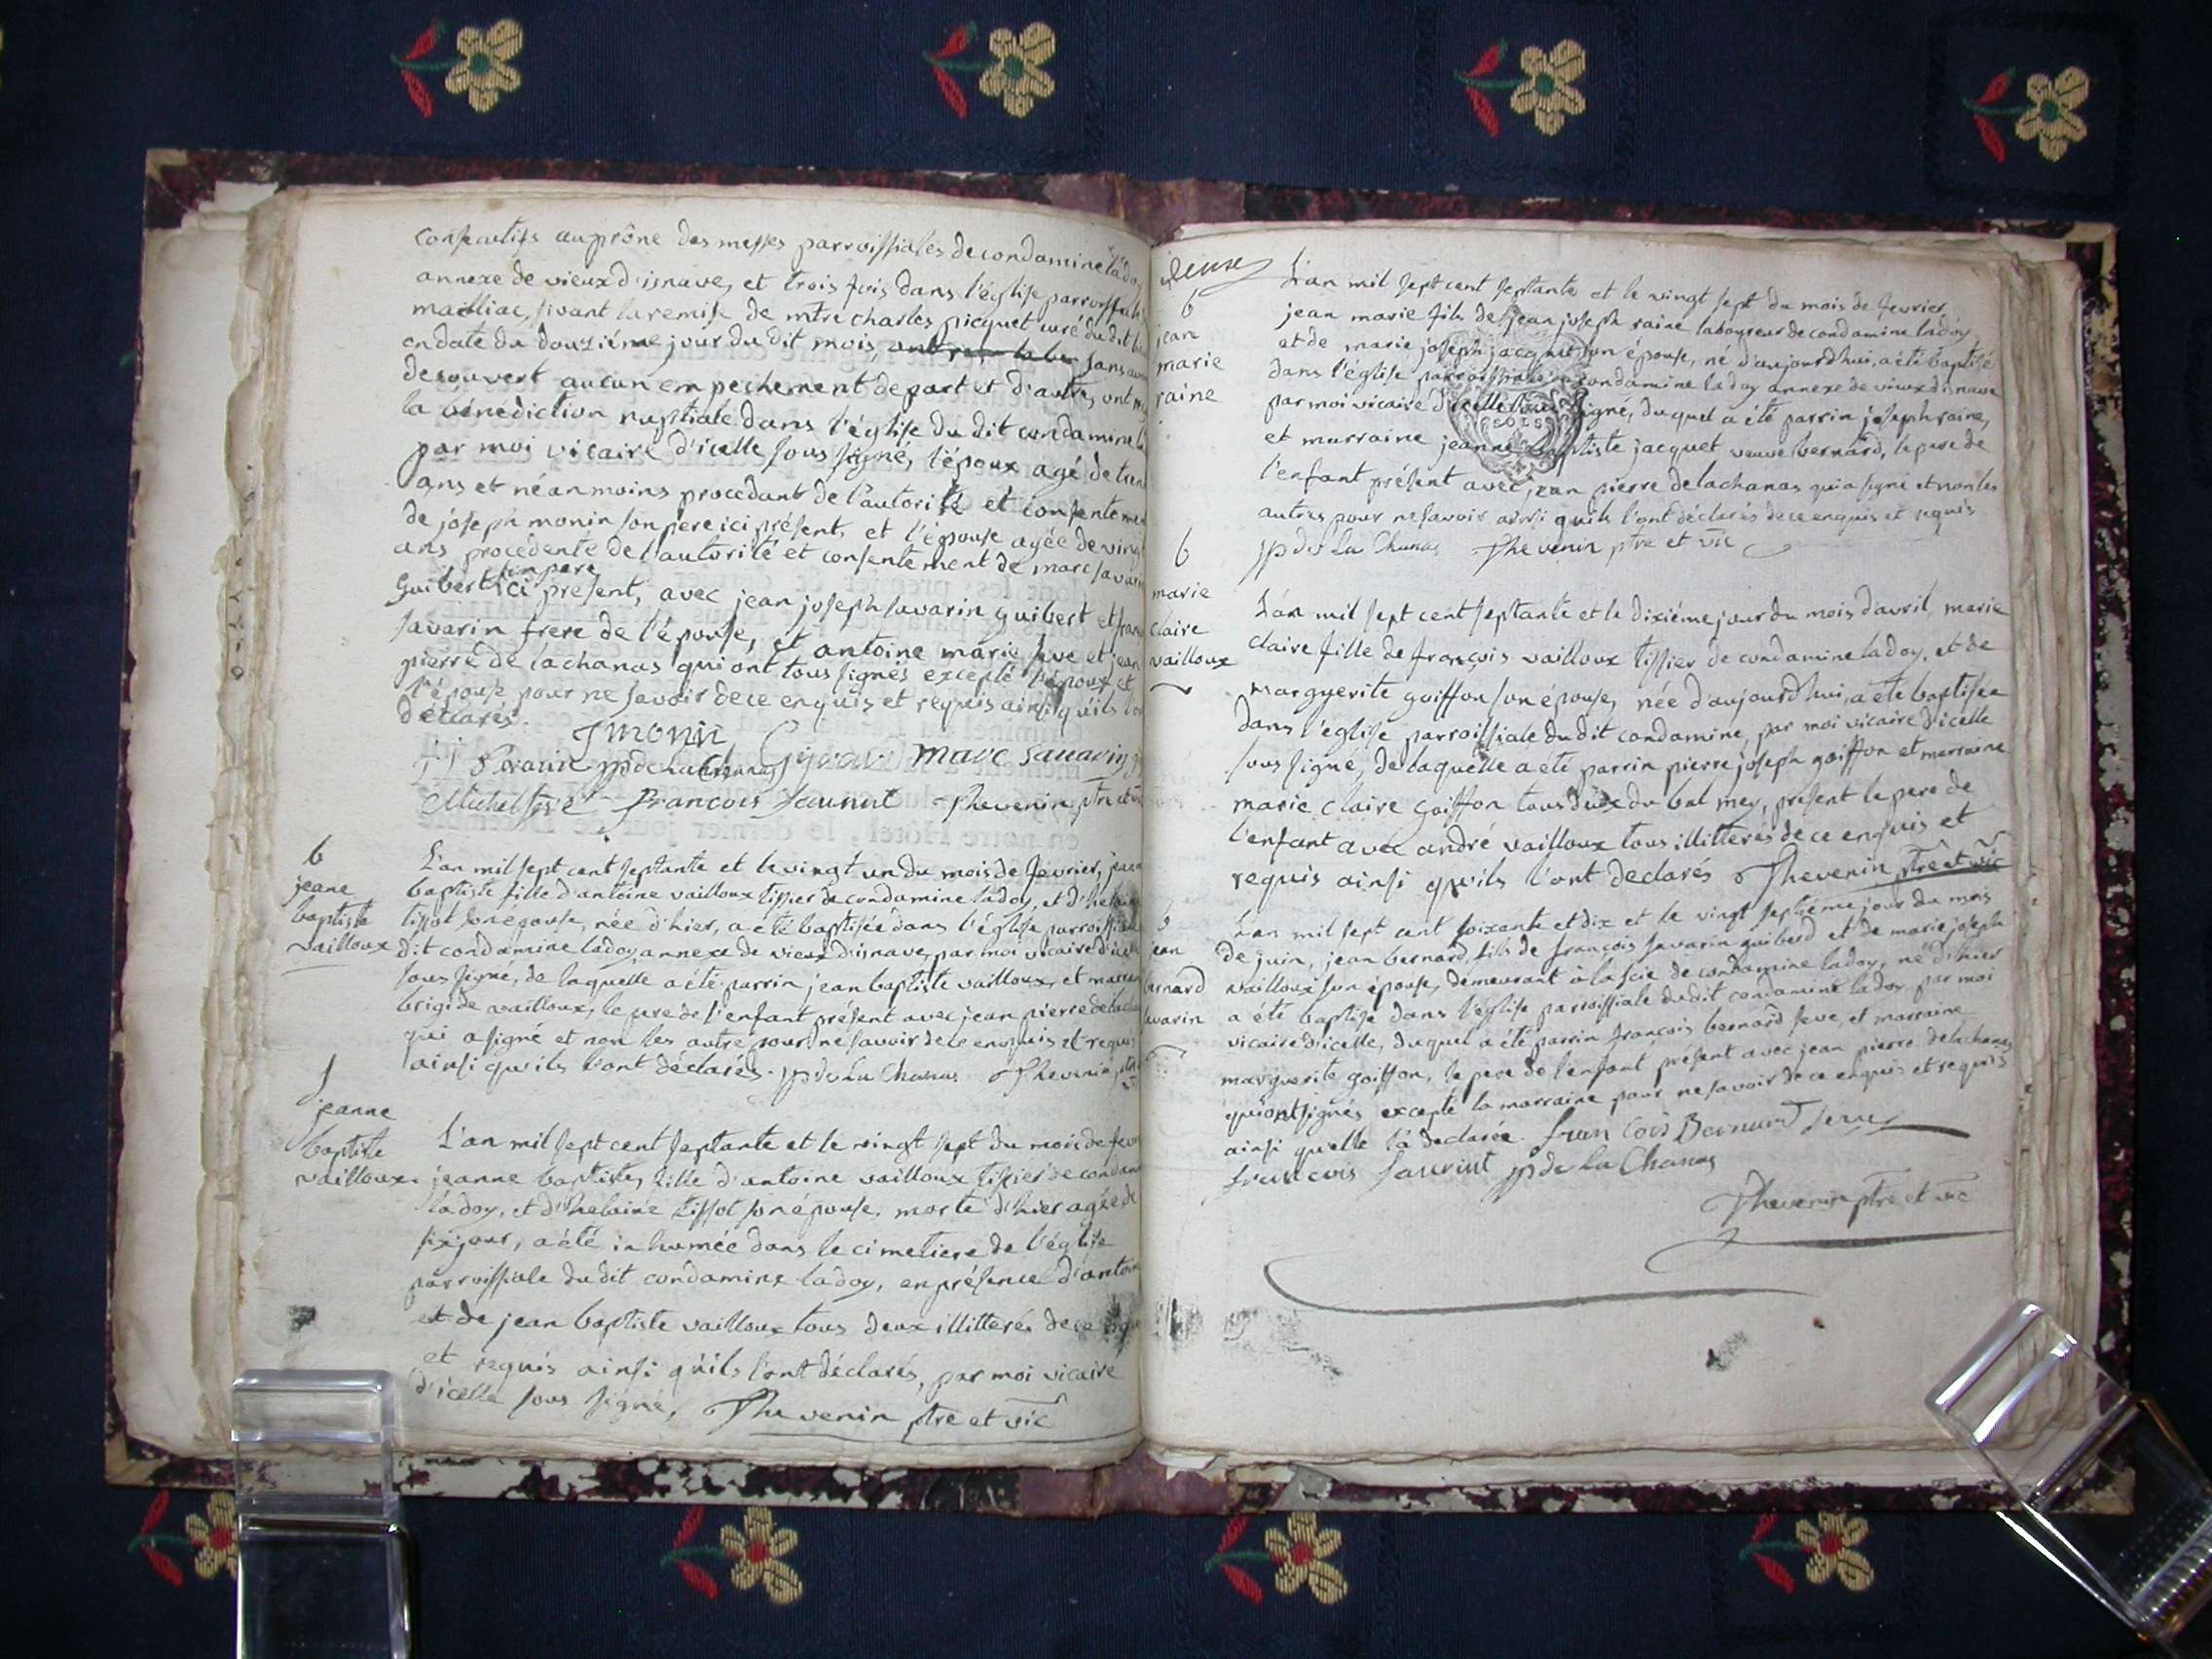 consecutifs au prône des messes parroissiales de condamine lado
annexe de vieux d'isnave, et trois fois dans l'église parroissial
mailliac, sivant la remise de mtre charles picquet curé du dit
en datte du douziéme jour du dit mois, sans
decouvert aucun empechement de part et d'autre, ont
la bénédiction nuptiale dans l'église du dit condamine
par moi vicaire d'icelle sous signé, l'époux agé de tren
ans et néanmoins procedant de l'autorité et consenteme
de joseph monin son pere ici présent, et l'épouse agée de vingt
ans procedente de l'autorité et consentement de marc savarin
guibert son pere ici présent, avec jean joseph savarin guibert et fran
savarin frere de l'épouse, et antoine marie seve et jean
pierre de lachanas qui ont tous signés excepté l'époux et
l'épouse pour ne savoir de ce enquis et requis ainsi qu'ils l'on
déclarés.
J monin
jp de la Chanas marc savarin
Michel francois Thevenin ptre et
b
jeane
baptiste
vailloux
L'an mil sept cent septante et le vingt un du mois de fevrier, jeane
baptiste fille d'antoine vailloux tissier de condamine ladoy, et d'helaine
tissot son epouse, née d'hier, a eté baptisée dans l'église parroissiale
dit condamine ladoy, annexe de vieux d'isnave, par moi vicaire d'icelle
sous signé, de laquelle a été parrin jean baptiste vailloux, et marrain
brigide vailloux, le pere de l'enfant présent avec jean pierre de lacha
qui a signé et non les autre pour ne savoir de ce enquis et requis
ainsi qu'ils l'ont déclarés. jp de la Chanas Thevenin ptre
jeanne
baptiste
vailloux.
L'an mil sept cent septante et le vingt sept du mois de fevr
jeanne baptiste, fille d'antoine vailloux tissier de condam
ladoy, et d'helaine tissot son épouse, morte d'hier agée de
six jour, a été inhumée dans le cimetiere de l'église
parroissiale du dit condamine ladoy, en présence d'antoin
et de jean baptiste vailloux tous deux illitterés de ce
et requis ainsi qu'ils l'ont déclarés, par moi vicaire
d'icelle sous signé, Thevenin ptre et vic
deux
b
jean
marie
raine
L'an mil sept cent septante et le vingt sept du mois de fevrier
jean marie fils de jean joseph raine laboureur de condamine ladoy
et de marie joseph jacquet son épouse, né d'aujourd'hui, a été baptisé
dans l'église parroissiale condamine ladoy annexe de vieux d'isnave
par moi vicaire d'icelle sous signé, duquel a été parrin joseph raine,
et marraine jeanne baptiste jacquet veuve bernard, le pere de
l'enfant présent avec jean pierre delachanas qui a signé et non les
autres pour ne savoir ainsi qu'ils l'ont déclarés de ce enquis et requis
jp de la Chanas Thevenin ptre et vic
SOLS
b
marie
claire
vailloux
L'an mil sept cent septante et le dixiéme jour du mois d'avril, marie
claire fille de françois vailloux tissier de condamine ladoy, et de
marguerite goiffon son épouse, née d'aujourd'hui, a été baptisée
dans l'église parroissiale du dit condamine, par moi vicaire d'icelle
sous signé, de laquelle a été parrin pierre joseph goiffon et marraine
marie claire goiffon tous deux du balmey, présent le pere de
l'enfant avec andré vailloux tous illitterés de ce enquis et
requis ainsi qu'ils l'ont declarés Thevenin ptre et vic
b
jean
bernard
savarin
L'an mil sept cent soixante et dix et le vingt septiéme jour du mois
de juin, jean bernard, fils de françois savarin guiberd et de marie joseph
vailloux son épouse, demeurant à la scie de condamine ladoy, né d'hier
a été baptisé dans l'église parroissiale du dit condamine ladoy par moi
vicaire d'icelle, duquel a été parrin françois bernard seve, et marraine
marguerite goiffon, le pere de l'enfant présent avec jean pierre delachanas
qui ont signés excepté la marraine pour ne savoir de ce enquis et requis
ainsi qu'elle l'a declarée. fran cois Bernard Seve
francois jp de la Chanas
Thevenin ptre et vic